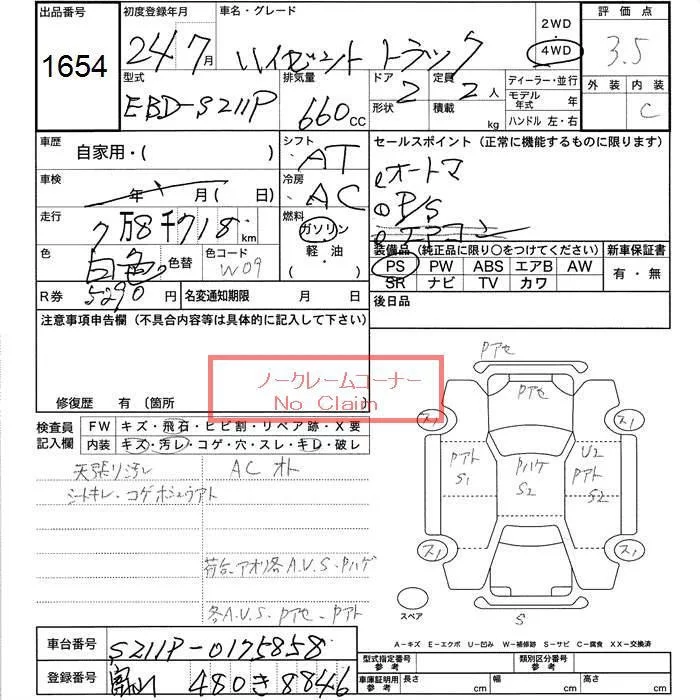 出品番号 1654
初度登録年月 24 7月
車名・グレード ハイゼット トラック
2WD
4WD
評価点 3.5
外装 内装 C
型式 EBD-S211P
排気量 660 CC
ドア形状 2
定員 2人
積載 kg
ディーラー・並行
モデル年式 年
ハンドル 左・右
車歴 自家用・( )
シフト AT
セールスポイント (正常に機能するものに限ります)
オートマ
P/S
エアコン
車検 年 月(日)
冷房 AC
走行 7万8千718km
燃料 ガソリン・軽・油・( )
色 白色 色替
色コード W09
装備品(純正品に限り○をつけてください)
PS PW ABS エアB AW
SR ナビ TV カワ
新車保証書
有・無
R券 5290円
名変通知期限 月 日
後日品
注意事項申告欄(不具合内容等は具体的に記入して下さい)
ノークレームコーナー
No Claim
修復歴 有 (箇所
検査員記入欄
FW キズ・飛石・ヒビ割・リペア跡・X要
内装 キズ・汚レ・コゲ・穴・スレ・キレ・破レ
天張り汚レ
AC オト
シートキレ・コゲホシュウアト
荷台、アオリ各A.U.S.Pハゲ
各A.U.S.Pアセ・Pアト
Pアセ
Pアセ
スノ
スノ
Pアト
S1
Pハゲ
S2
U2
Pアト
S2
スノ
スノ
スペア
S
A-キズ E-エクボ U-凹み W-補修跡 S-サビ C-腐食 XX-交換済
車台番号 S211P-0175858
登録番号 富山 480 き 8846
型式指定番号 参考
類別区分番号 参考
車庫証明用 参考
長さ cm
幅 cm
高さ cm